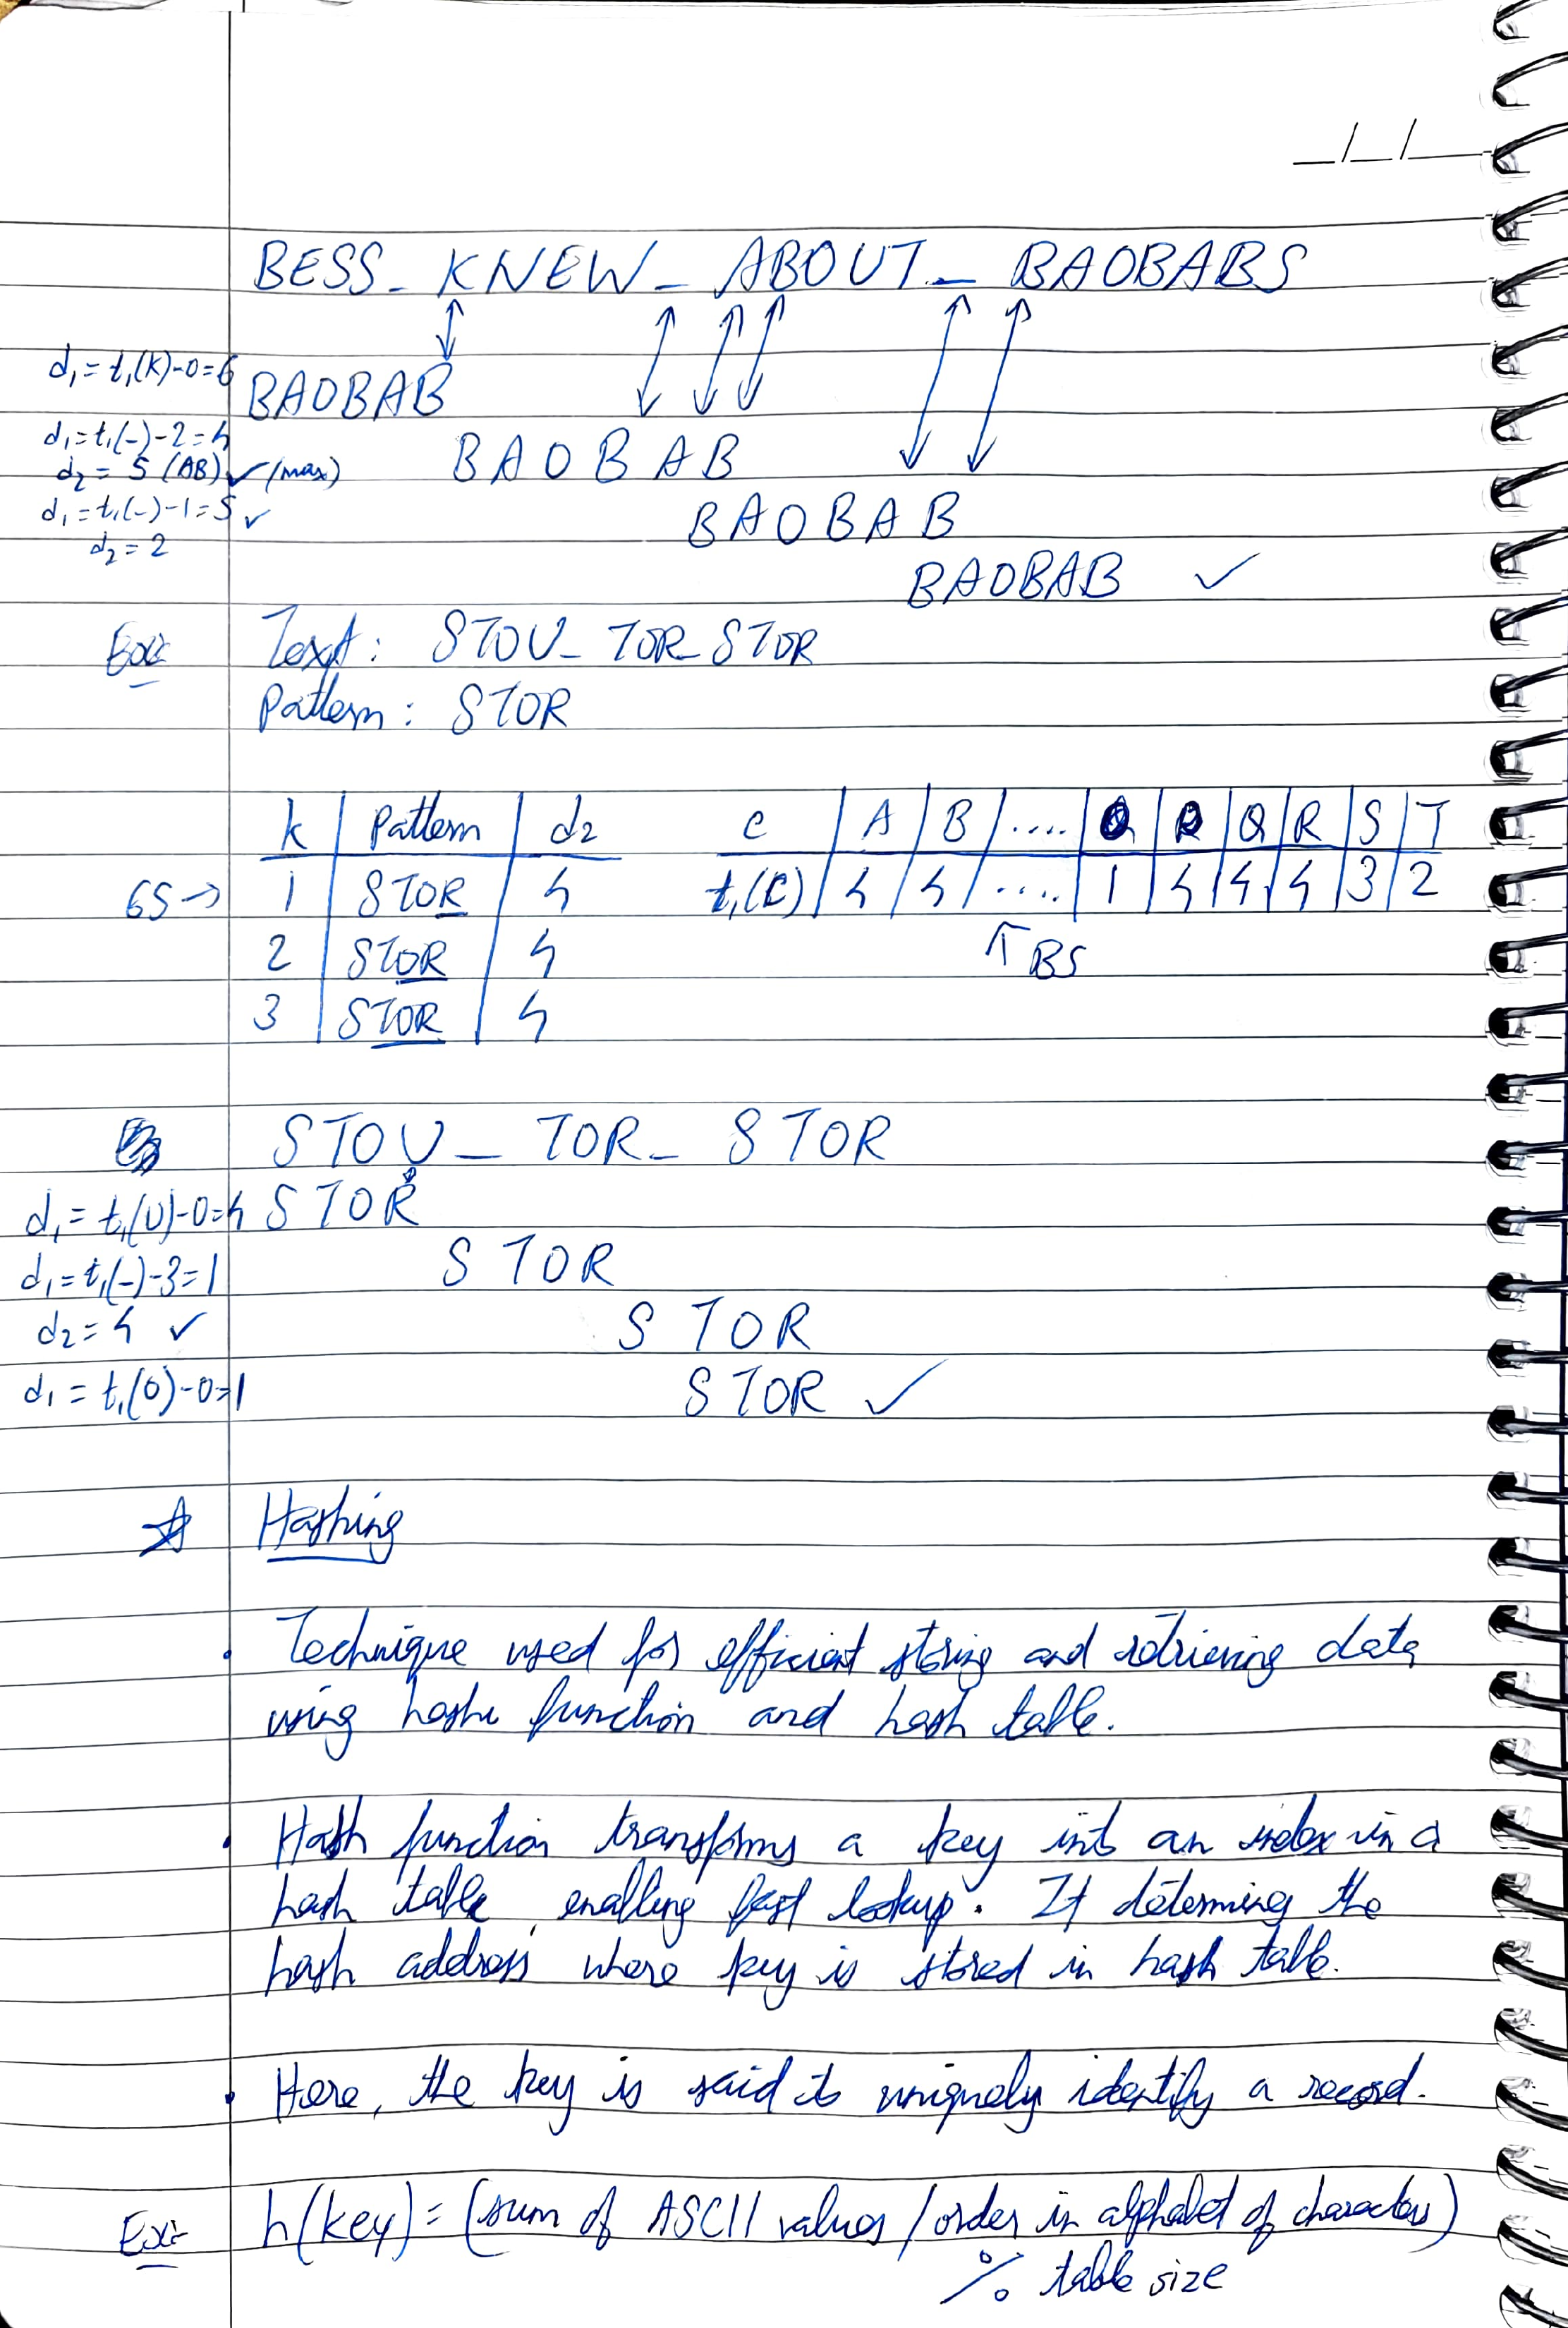 _/_/
BESS_KNEW_ABOUT_BAOBABS
d₁ = t₁(K)-0=6
BAOBAB
d₁=t₁(-)-2=4
d₂ = 5 (AB) ✓ (max)
BAOBAB
d₁=t₁(-)-1=5 ✓
BAOBAB
d₂ = 2
BAOBAB ✓
Ex:- Text: STOU_TOR_STOR
Pattern: STOR
k | Pattern | d₂
1 | STOR | 4
2 | STOR | 4
3 | STOR | 4
GS →
c | A | B | .... | O | P | Q | R | S | T
t₁(c) | 4 | 4 | .... | 1 | 4 | 4 | 4 | 3 | 2
↑ BS
STOU_TOR_STOR
d₁ = t₁(U)-0=4 STOR
d₁ = t₁(-)-3=1 STOR
d₂ = 4 ✓ STOR
d₁ = t₁(O)-0=1 STOR ✓
☆ Hashing
• Technique used for efficient storing and retrieving data
using hash function and hash table.
• Hash function transforms a key into an index in a
hash table, enabling fast lookup. It determing the
hash address where key is stored in hash table.
• Here, the key is said to uniquely identify a record.
Ex:- h(key) = (sum of ASCII values / order in alphabet of characters)
% table size